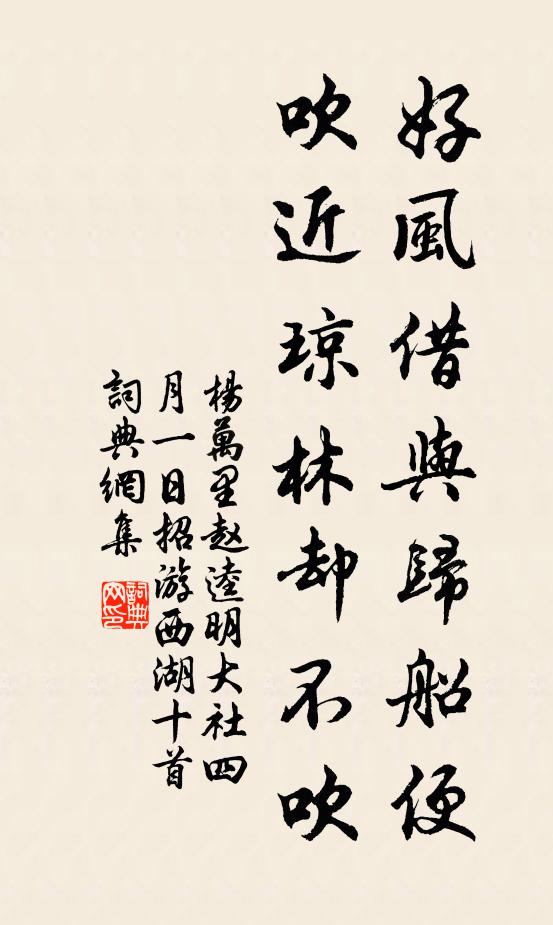 好風借與歸船便
吹近琼林却不吹
楊萬里赵逵明大社四
月一日招游西湖十首
詞典網集
詞典网印